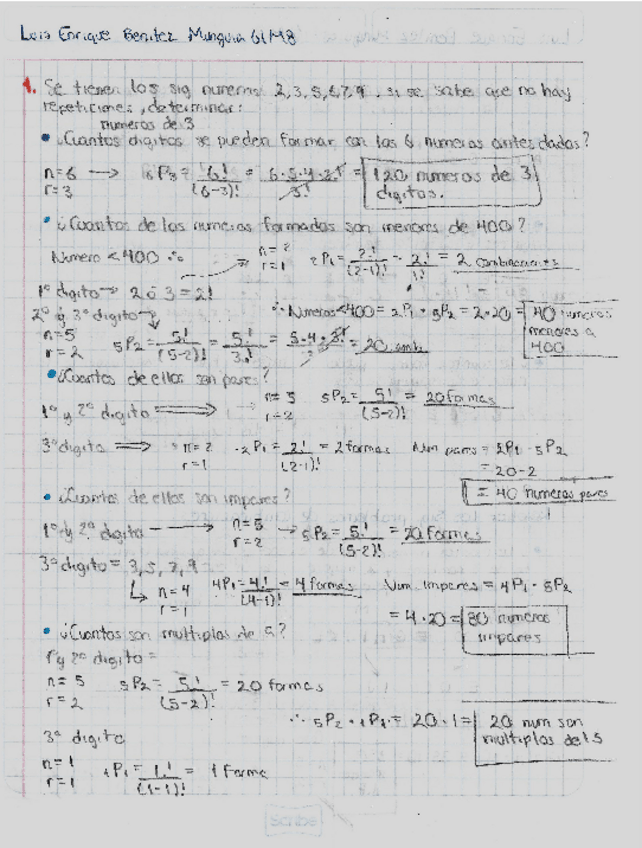 Luis Enrique Benitez Munguia 6IM8
1. Se tienen los sig numeros 2,3,5,6,7,9, si se sabe que no hay
repeticiones, determinar:
numeros de 3
• ¿Cuantos digitos se pueden formar con los 6 numeros antes dados?
n=6 → 6P3 = 6!/(6-3)! = 6·5·4·3!/3! = 120 numeros de 3
r=3 digitos.
• ¿Cuantos de los numeros formados son menores de 400?
Numero <400 ∴ n=2 r=1 2P1 = 2!/(2-1)! = 2!/1! = 2 combinaciones
1° digito → 2 ó 3 = 2!
2° y 3° digito → ∴ Numeros<400 = 2P1 · 5P2 = 2·20 = 40 numeros
menores a
400
n=5
r=2 5P2 = 5!/(5-2)! = 5!/3! = 5·4·3!/3! = 20 comb
• ¿Cuantos de ellos son pares?
1° y 2° digito ⟹ n=5 r=2 5P2 = 5!/(5-2)! = 20 formas
3° digito ⟹ n=2 r=1 2P1 = 2!/(2-1)! = 2 formas Num pares = 2P1 · 5P2
= 20·2
= 40 numeros pares
• ¿Cuantos de ellos son impares?
1° y 2° digito → n=5 r=2 → 5P2 = 5!/(5-2)! = 20 formas
3° digito = 3,5,7,9
↳ n=4 r=1 4P1 = 4!/(4-1)! = 4 formas Num impares = 4P1 · 5P2
= 4·20 = 80 numeros
impares
• ¿Cuantos son multiplos de 5?
1° y 2° digito =
n=5
r=2 5P2 = 5!/(5-2)! = 20 formas
∴ 5P2 · 1P1 = 20·1 = 20 num son
multiplos de 5
3° digito
n=1
r=1 1P1 = 1!/(1-1)! = 1 forma
Scribe